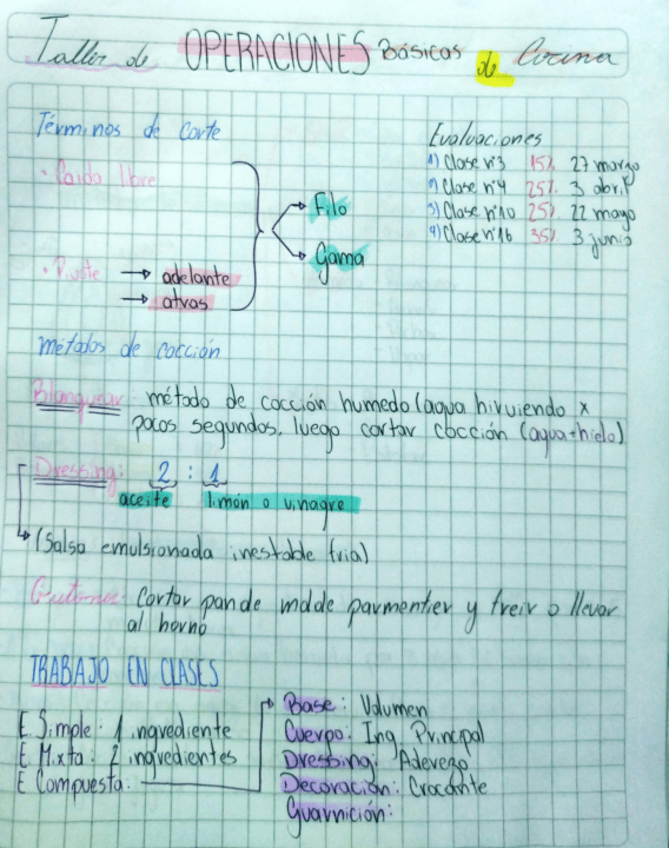 Taller de OPERACIONES Básicas de Cocina
Términos de corte
• Caida libre
• Pivote → adelante
→ atras
Filo
Gama
Evaluaciones
1) Clase n°3 15% 27 marzo
2) Clase n°4 25% 3 abril
3) Clase n°10 25% 22 mayo
4) Clase n°16 35% 3 junio
métodos de cocción
Blanquear método de cocción humedo (agua hirviendo x
pocos segundos. luego cortar cocción (agua+hielo)
Dressing: 2 : 1
aceite limón o vinagre
(Salsa emulsionada inestable fria)
Crutones: Cortar pan de molde parmentier y freir o llevar
al horno
TRABAJO EN CLASES
E Simple: 1 ingrediente
E Mixta: 2 ingredientes
E Compuesta:
Base: Volumen
Cuerpo: Ing Principal
Dressing: Aderezo
Decoración: Crocante
Guarnición: